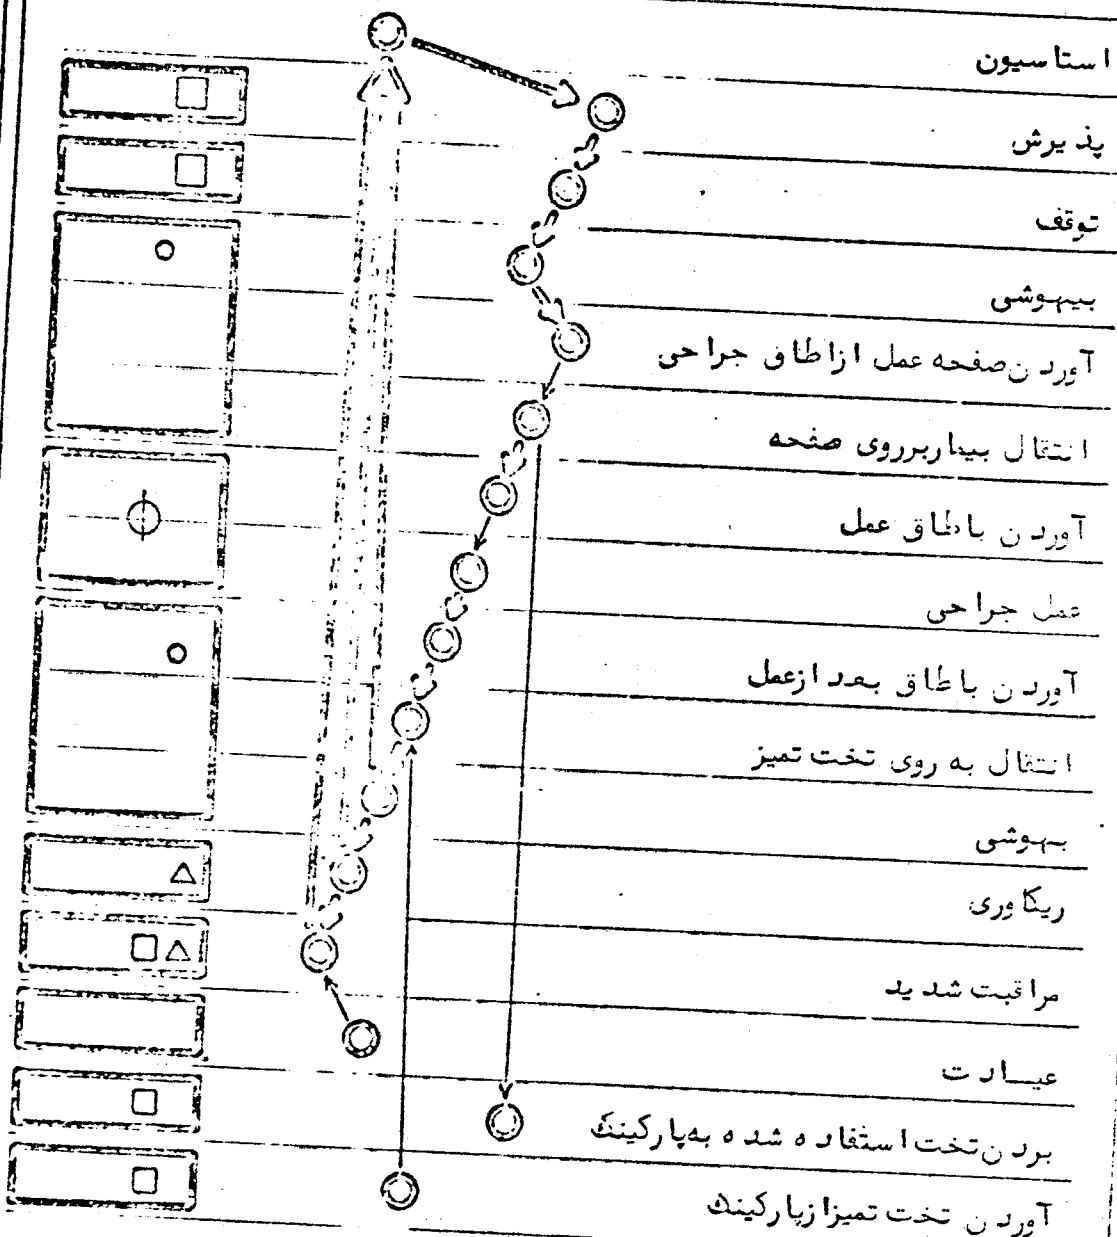 استاسیون
پذیرش
توقف
بیهوشی
آوردن صفحه عمل ازاطاق جراحی
انتقال بیماربرروی صفحه
آوردن باطاق عمل
عمل جراحی
آوردن باطاق بعد ازعمل
انتقال به روی تخت تمیز
بهوشی
ریکاوری
مراقبت شدید
عیادت
بردن تخت استفاده شده به پارکینک
آوردن تخت تمیزازپارکینک